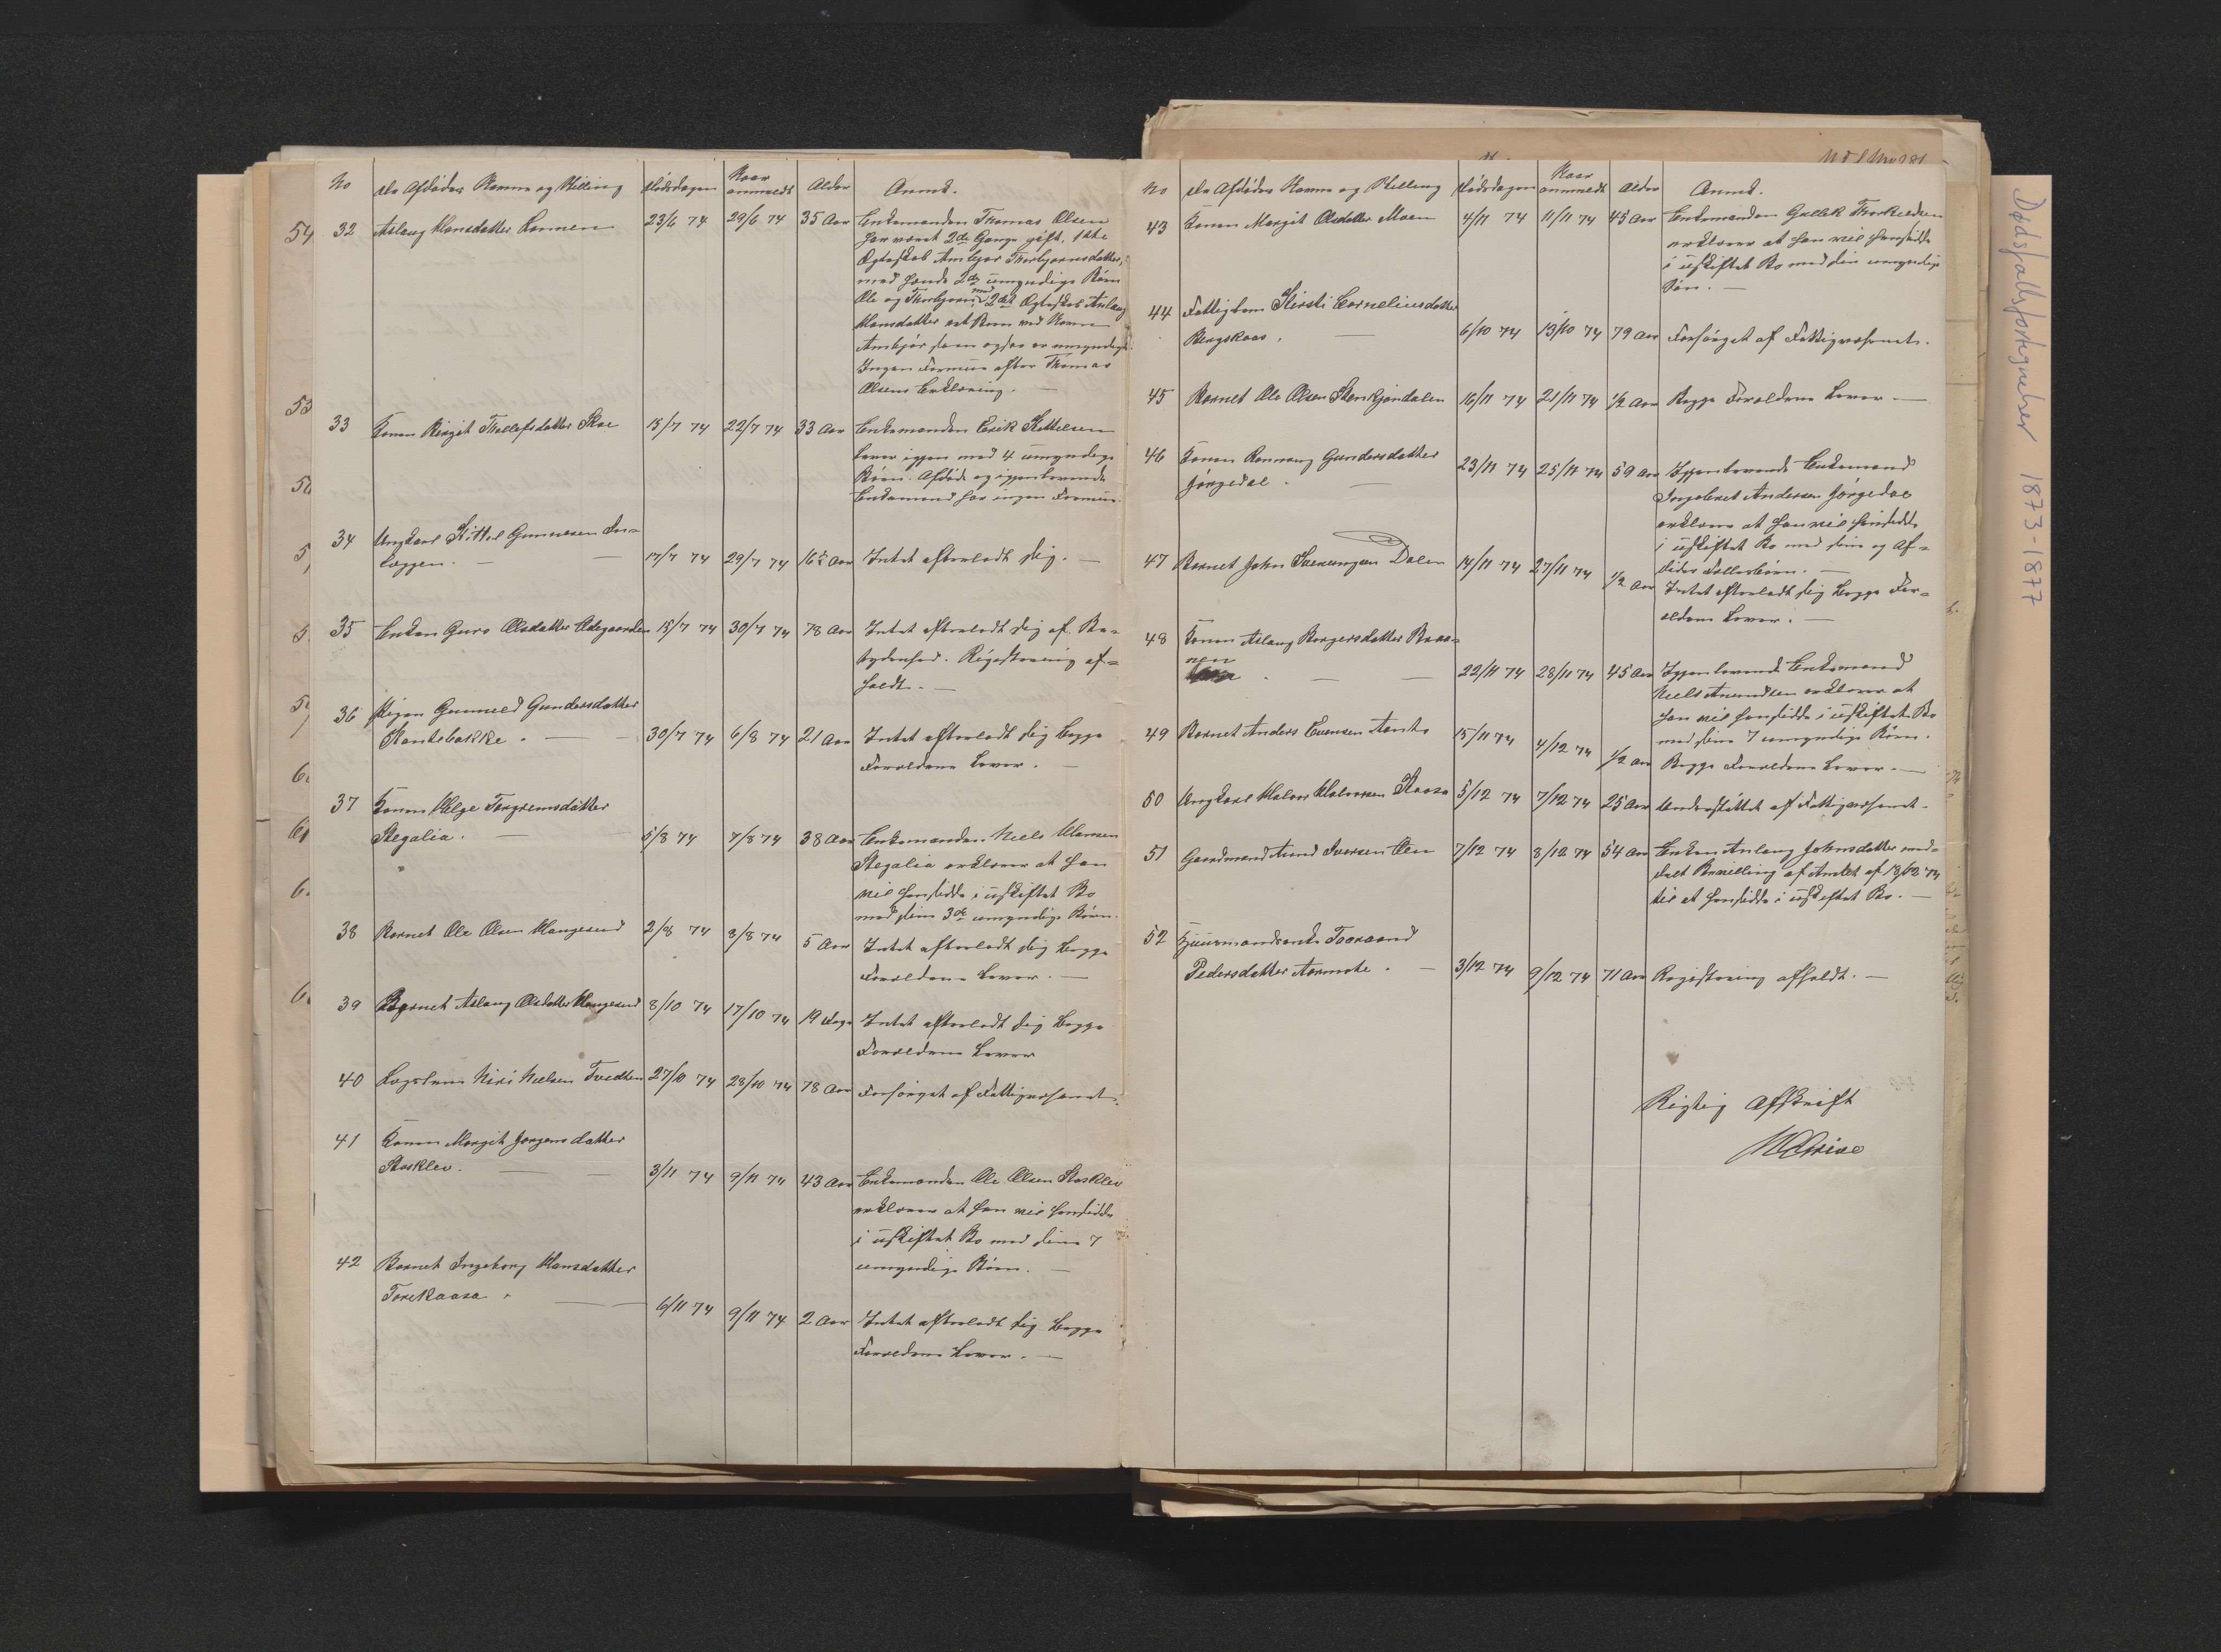 No de Afdødes Navne og Stilling Dødsdagen Naar anmeldt Alder Anmk.
32 Aslaug Hansdatter Lonnen 23/6 74 29/6 74 35 Aar Enkemanden Thomas Olsen
har været 2de Gange gift, 1ste
Ægteskab Ambjør Thorbjørnsdatter,
med hende 2de umyndige Børn
Ole og Thorbjørn, med 2det Ægteskab Aslaug
Hansdatter et Barn ved Navn
Ambjør som ogsaa er umyndig.
Ingen Formue efter Thomas
Olsens Erklæring. —
33 Konen Birgit Thollefsdatter Skoe 15/7 74 22/7 74 33 Aar Enkemanden Erik Kittelsen
lever igjen med 4 umyndige
Børn. Afdøde og igjenlevende
Enkemand har ingen Formue.
34 Ungkarl Kittel Gunnersen
17/7 74 29/7 74 16½ Aar Intet efterladt sig. —
35 Enken Guro Olsdatter Ødegaarden 15/7 74 30/7 74 78 Aar Intet efterladt sig af Be=
tydenhed. Registrering af=
holdt. —
36 Pigen Gunnild Gundersdatter
Skontebakke. — 30/7 74 6/8 74 21 Aar Intet efterladt sig begge
Forældrene lever. —
37 Konen Helge Torgremsdatter
Stegalia. — 5/8 74 7/8 74 38 Aar Enkemanden Niels Hansen
Stegalia erklærer at han
vil hensidde i uskiftet Bo
med sine 3de umyndige Børn.
38 Barnet Ole Olsen Haugesund 2/8 74 8/8 74 5 Aar Intet efterladt sig begge
Forældrene lever. —
39 Barnet Aslaug Olsdatter Haugesund 8/10 74 17/10 74 19 Dage Intet efterladt sig begge
Forældrene lever
40 Lægslem Niri Nielsen Tvedten 27/10 74 28/10 74 78 Aar Forsørget af Fattigvæsenet.
41 Konen Margit Jorgensdatter
Stasklev. — 3/11 74 9/11 74 43 Aar Enkemanden Ole Olsen Stasklev
erklærer at han vil hensidde
i uskiftet Bo med sine 7
umyndige Børn. —
42 Barnet Ingeborg Hansdatter
Torekaasa. — 6/11 74 9/11 74 2 Aar Intet efterladt sig begge
Forældrene lever. —
No de Afdødes Navne og Stilling Dødsdagen Naar anmeldt Alder Anmk.
43 Konen Margit Olsdatter Moen 4/11 74 11/11 74 45 Aar Enkemanden Gullek Thorkildsen
erklærer at han vil hensidde
i uskiftet Bo med sin umyndige
Søn. —
44 Fattiglem Kirsti Corneliusdatter
Bergskaas. — 6/10 74 13/10 74 79 Aar Forsørget af Fattigvæsenet.
45 Barnet Ole Olsen Stenkjøndalen 16/11 74 21/11 74 1/2 Aar Begge Forældrene lever —
46 Konen Rannaug Gundersdatter
Jørgedal. — 23/11 74 25/11 74 59 Aar Igjenlevende Enkemand
Ingebret Andersen Jørgedal
erklærer at han vil hensidde
i uskiftet Bo med sine og Af=
dødes Fællesbørn. —
47 Barnet John Sveinungsen Dalen 14/11 74 27/11 74 1/2 Aar Intet efterladt sig begge For=
ældrene lever. —
48 Konen Aslaug Borgersdatter Braa=
nen — 22/11 74 28/11 74 45 Aar Igjenlevende Enkemand
Niels Amundsen erklærer at
han vil hensidde i uskiftet Bo
med sine 7 umyndige Børn.
49 Barnet Anders Evensen Aanto 15/11 74 4/12 74 1/2 Aar Begge Forældrene lever. —
50 Ungkarl Halvor Halvorsen Kaasa 5/12 74 7/12 74 25 Aar Understøttet af Fattigvæsenet.
51 Gaardmand Aund Iversen Øen 7/12 74 8/12 74 54 Aar Enken Aslaug Johnsdatter med=
delt Bevilling af Amtet af 18/12 74
til at hensidde i uskiftet Bo. —
52 Huusmandsenke Tooraand
Pedersdatter Aarmote. — 3/12 74 9/12 74 71 Aar Registrering afholdt. —
Rigtig Afskrift
Dødsfallsfortegnelser 1873-1877